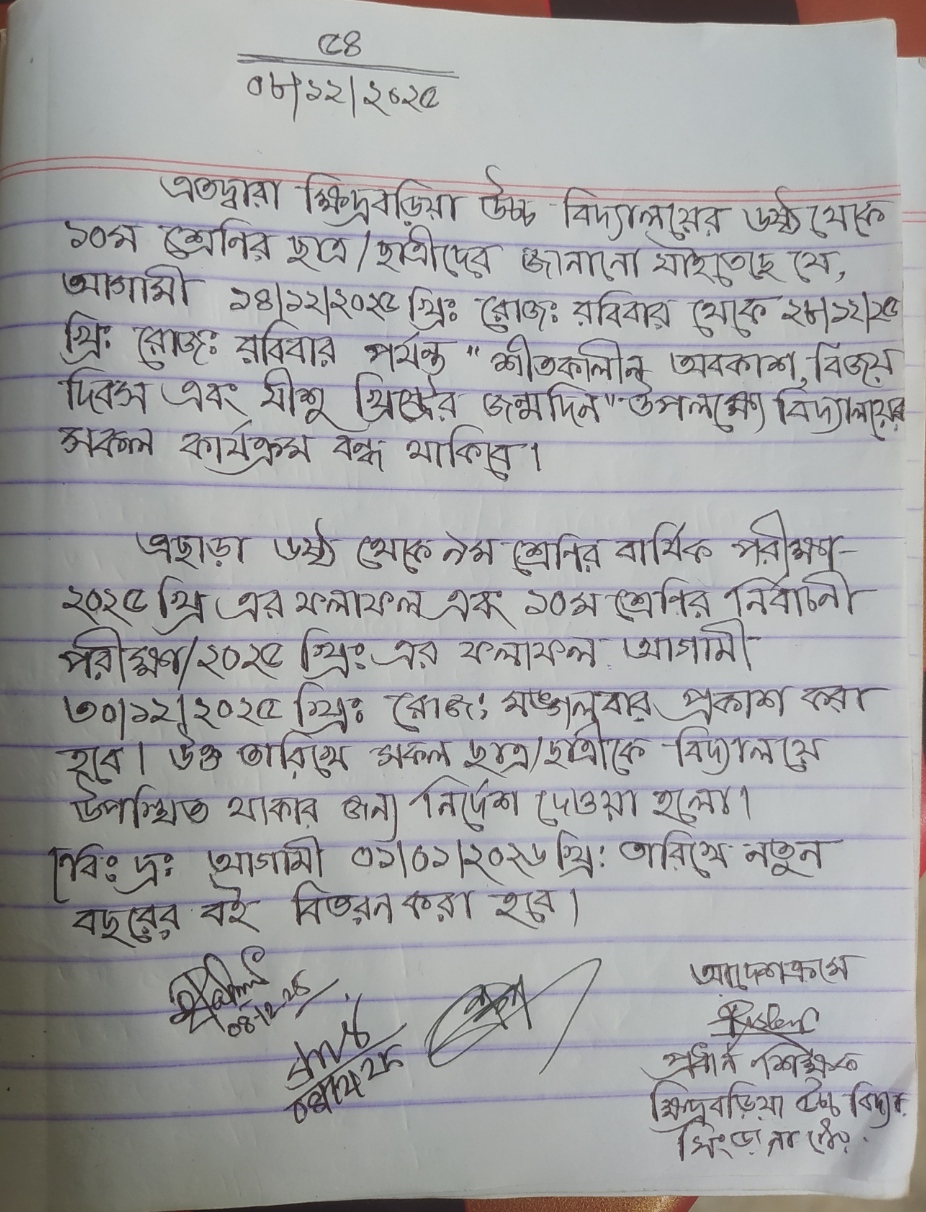 ৫৪
০৮/১২/২০২৫
এতদ্বারা ক্ষিদ্রবড়িয়া উচ্চ বিদ্যালয়ের ৬ষ্ঠ থেকে
১০ম শ্রেণির ছাত্র/ছাত্রীদের জানানো যাইতেছে যে,
আগামী ১৪/১২/২০২৫ খ্রিঃ রোজঃ রবিবার থেকে ২৮/১২/২৫
খ্রিঃ রোজঃ রবিবার পর্যন্ত "শীতকালীন অবকাশ, বিজয়
দিবস এবং যীশু খ্রিস্টের জন্মদিন" উপলক্ষ্যে বিদ্যালয়ের
সকল কার্যক্রম বন্ধ থাকিবে।
এছাড়া ৬ষ্ঠ থেকে ৯ম শ্রেণির বার্ষিক পরীক্ষা-
২০২৫ খ্রি এর ফলাফল এবং ১০ম শ্রেণির নির্বাচনী
পরীক্ষা/২০২৫ খ্রিঃ এর ফলাফল আগামী
৩০/১২/২০২৫ খ্রিঃ রোজঃ মঙ্গলবার প্রকাশ করা
হবে। উক্ত তারিখে সকল ছাত্র/ছাত্রীকে বিদ্যালয়ে
উপস্থিত থাকার জন্য নির্দেশ দেওয়া হলো।
বিঃ দ্রঃ আগামী ০১/০১/২০২৬ খ্রিঃ তারিখে নতুন
বছরের বই বিতরন করা হবে।
আদেশক্রমে
08.12.25
প্রধান শিক্ষক
ক্ষিদ্রবড়িয়া উচ্চ বিদ্যা
সিংড়া নাটোর.